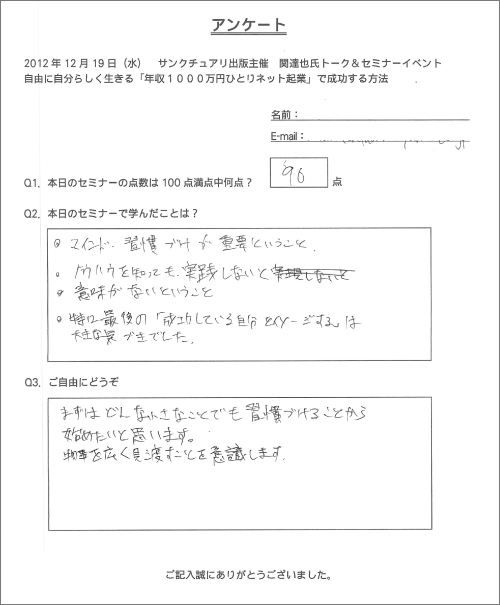 アンケート
2012年12月19日（水）　サンクチュアリ出版主催　関達也氏トーク＆セミナーイベント
自由に自分らしく生きる「年収１０００万円ひとりネット起業」で成功する方法
名前：
E-mail：
Q1．本日のセミナーの点数は100点満点中何点？ 90 点
Q2．本日のセミナーで学んだことは？
・マインド・習慣づけが重要ということ．
・ノウハウを知っても、実践しないと
・意味がないということ
・特に最後の「成功している自分をイメージする」は
大きな気づきでした．
Q3．ご自由にどうぞ
まずはどんな小さなことでも習慣づけることから
始めたいと思います。
物事を広く見渡すことを意識します．
ご記入誠にありがとうございました。